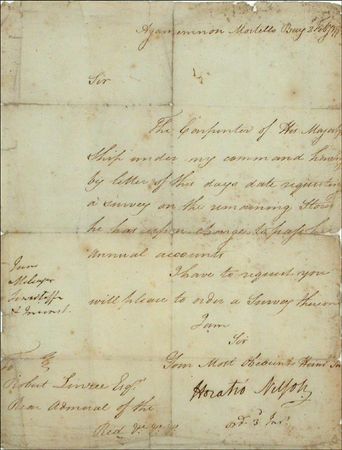 Agamemnon Mortello Bay 2 Feby
Sir
The Carpenter of His Majestys
Ship under my command having
by letter of this days date requested
a survey on the remaining Stores
he has upon charge to pass his
annual accounts
I have to request you
will please to order a Survey thereon
I am
Sir
Your Most Obedient Humb
Horatio Nelson
Robert Linzee Esqr
Rear Admiral of the
Red &c &c &c